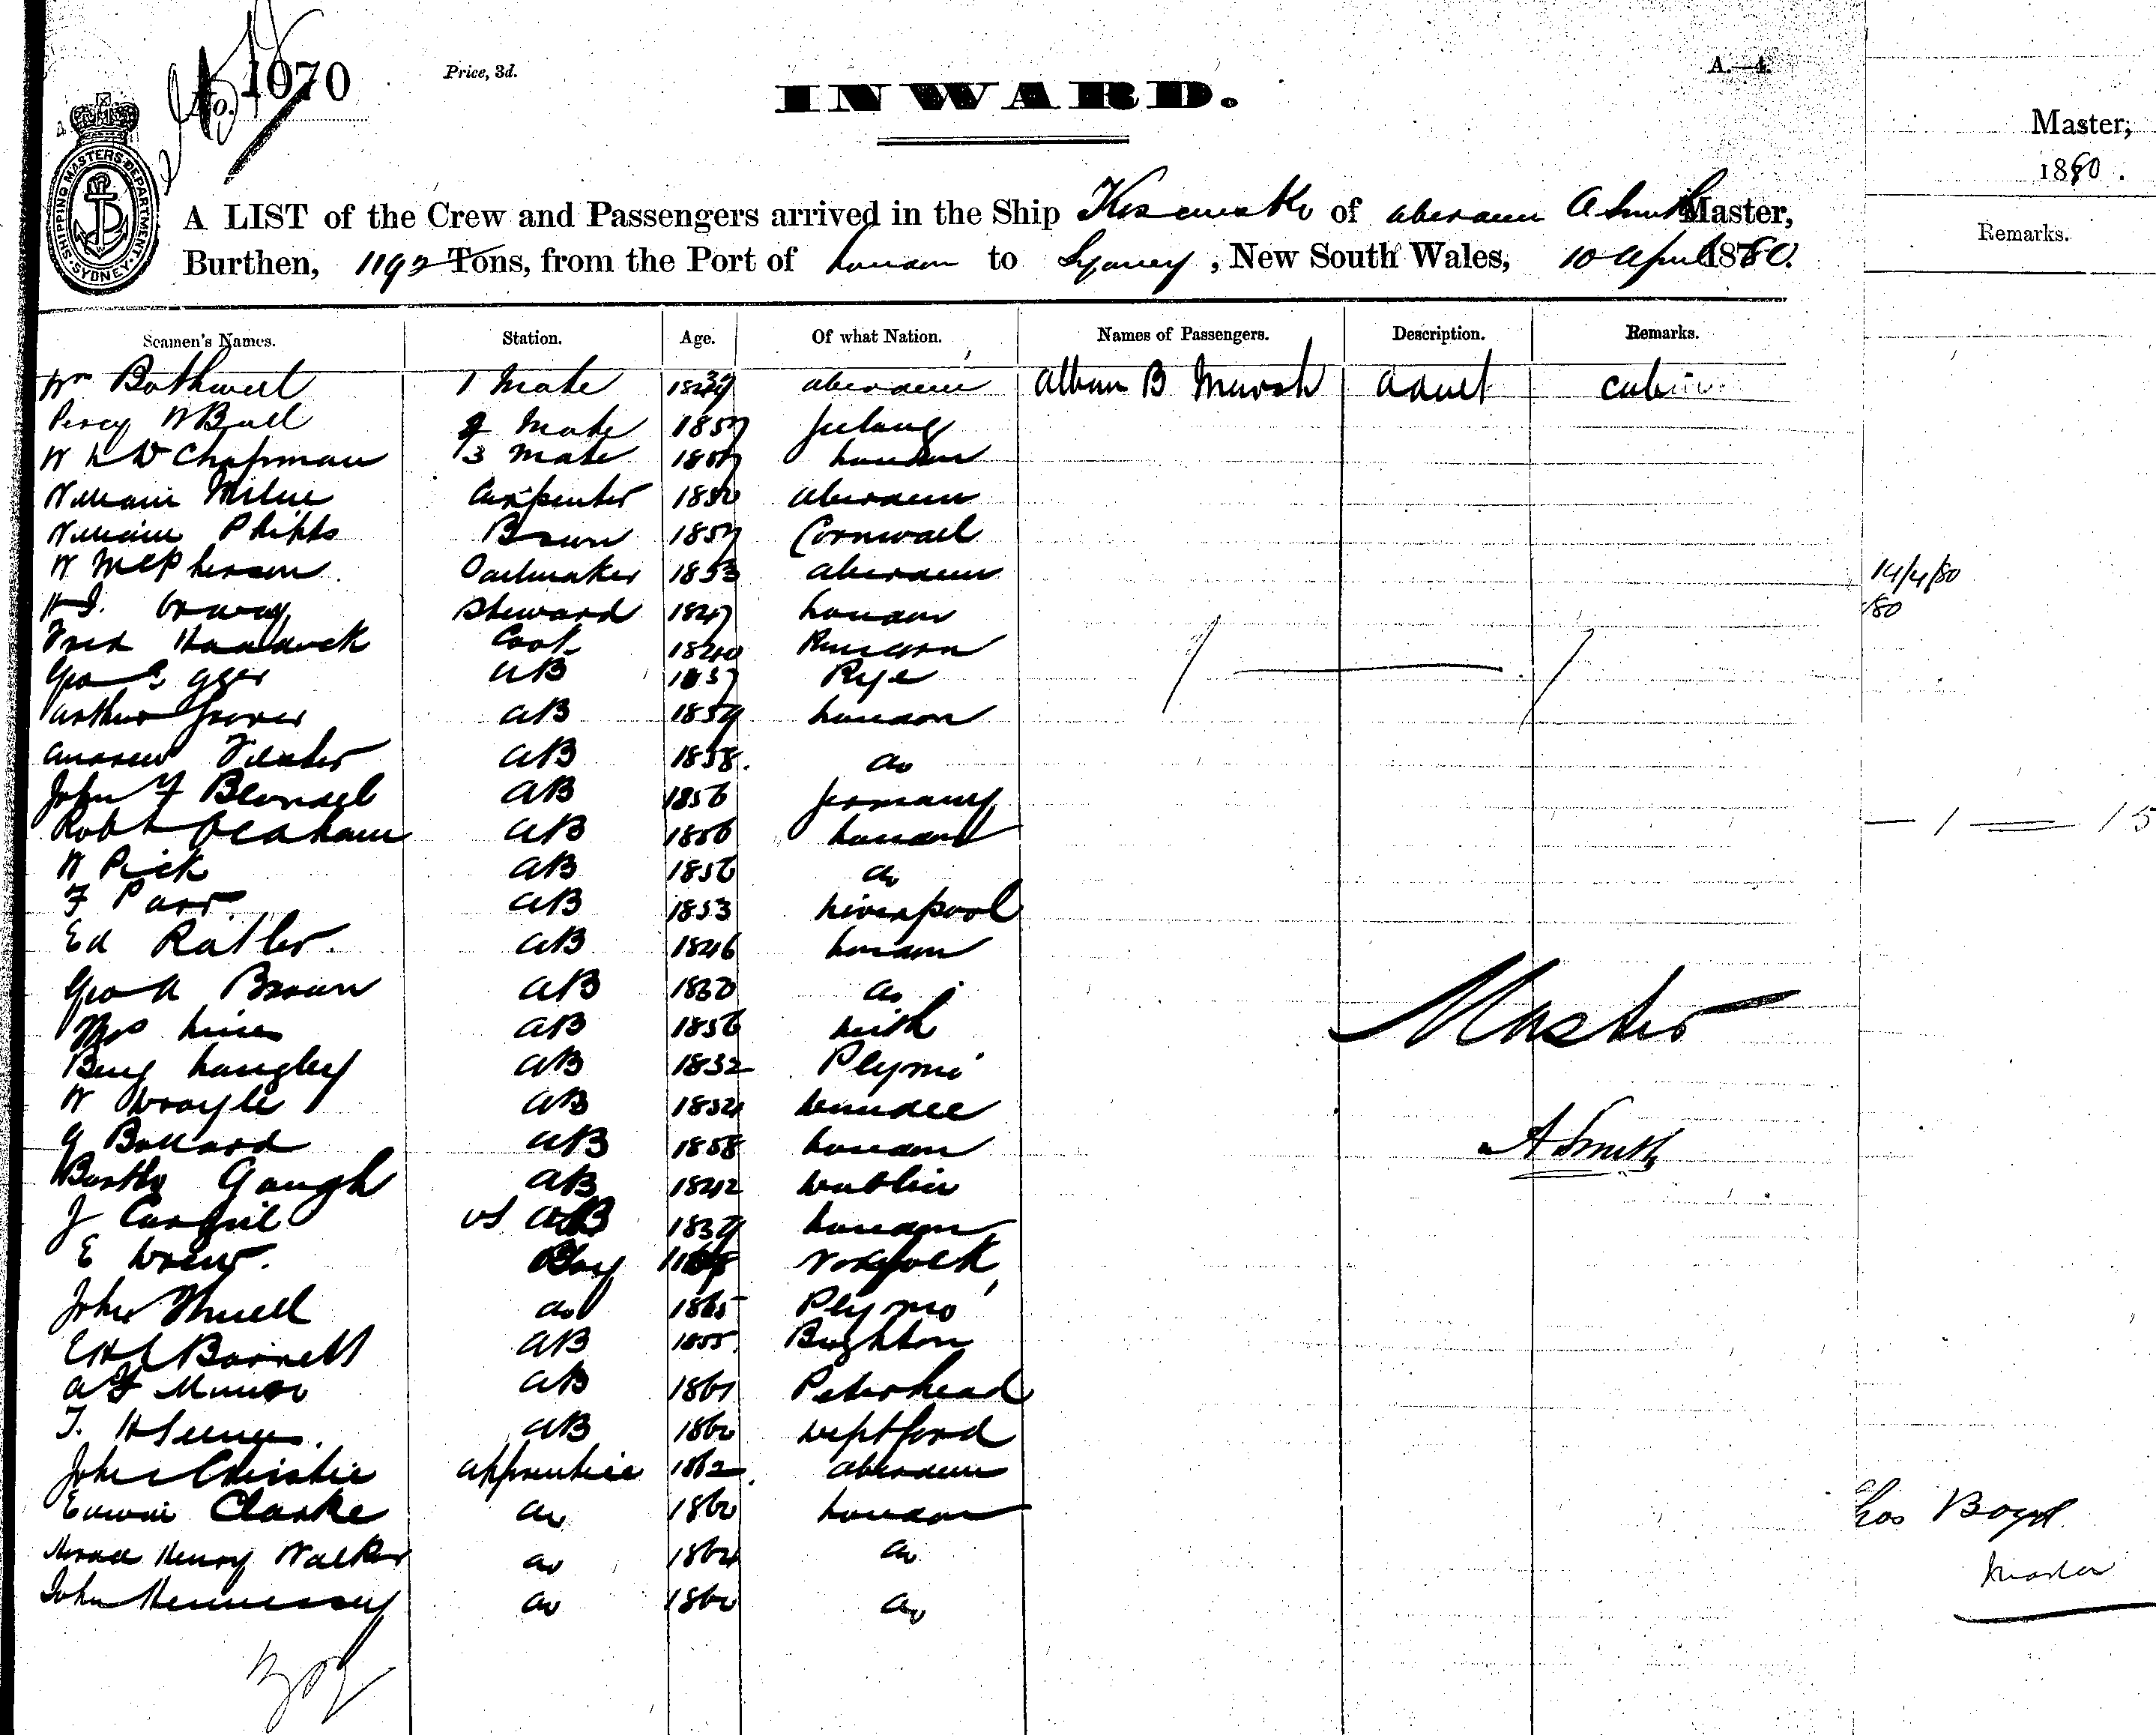 No. 1070
Price, 3d.
INWARD.
A.—4.
SHIPPING MASTERS DEPARTMENT · SYDNEY ·
A LIST of the Crew and Passengers arrived in the Ship of Aberdeen A Smith Master,
Burthen, 1192 Tons, from the Port of London to Sydney, New South Wales, 10 April 1880.
Seamen's Names. Station. Age. Of what Nation. Names of Passengers. Description. Remarks.
Wm Bothwell 1 Mate Aberdeen Alban B Marsh Adult Cabin
Percy W Bull 2 Mate 1857 Geelong
W L W Chapman 3 Mate London
William Milne Carpenter 1850 Aberdeen
William Phipps Bosun 1857 Cornwall
W McPherson Sailmaker 1853 Aberdeen
Steward 1847 London
Fred Cook 1840 Runcorn
Geo E Gger AB 1837 Rye
Arthur Grover AB 1859 London
Andrew AB 1858. do
John F Blondsel AB 1856 Germany
Robt Graham AB 1856 London
W Pick AB 1856 do
F Parr AB 1853 Liverpool
Ed Ratler AB 1846 London
Geo A Brown AB 1830 do
AB 1856 Leith
Benj Langley AB 1832 Plymo
W Doogle AB 1854 Dundee
G Bollard AB 1858 London
Gough AB 1842 Dublin
J AB 1839 London
E Drew. Boy Norfolk
John do 1865 Plymo
Barnett AB 1855. Brighton
A F Munro AB 1861 Peterhead
T. H AB 1860 Deptford
John Christie Apprentice 1862 Aberdeen
Edwin Clarke do 1860 London
Henry Walker do 1864 do
John Hennessy do 1860 do
Master
A Smith
Master;
1880.
Remarks.
14/4/80
/80
— 1 — 15
hos Boyd
Master